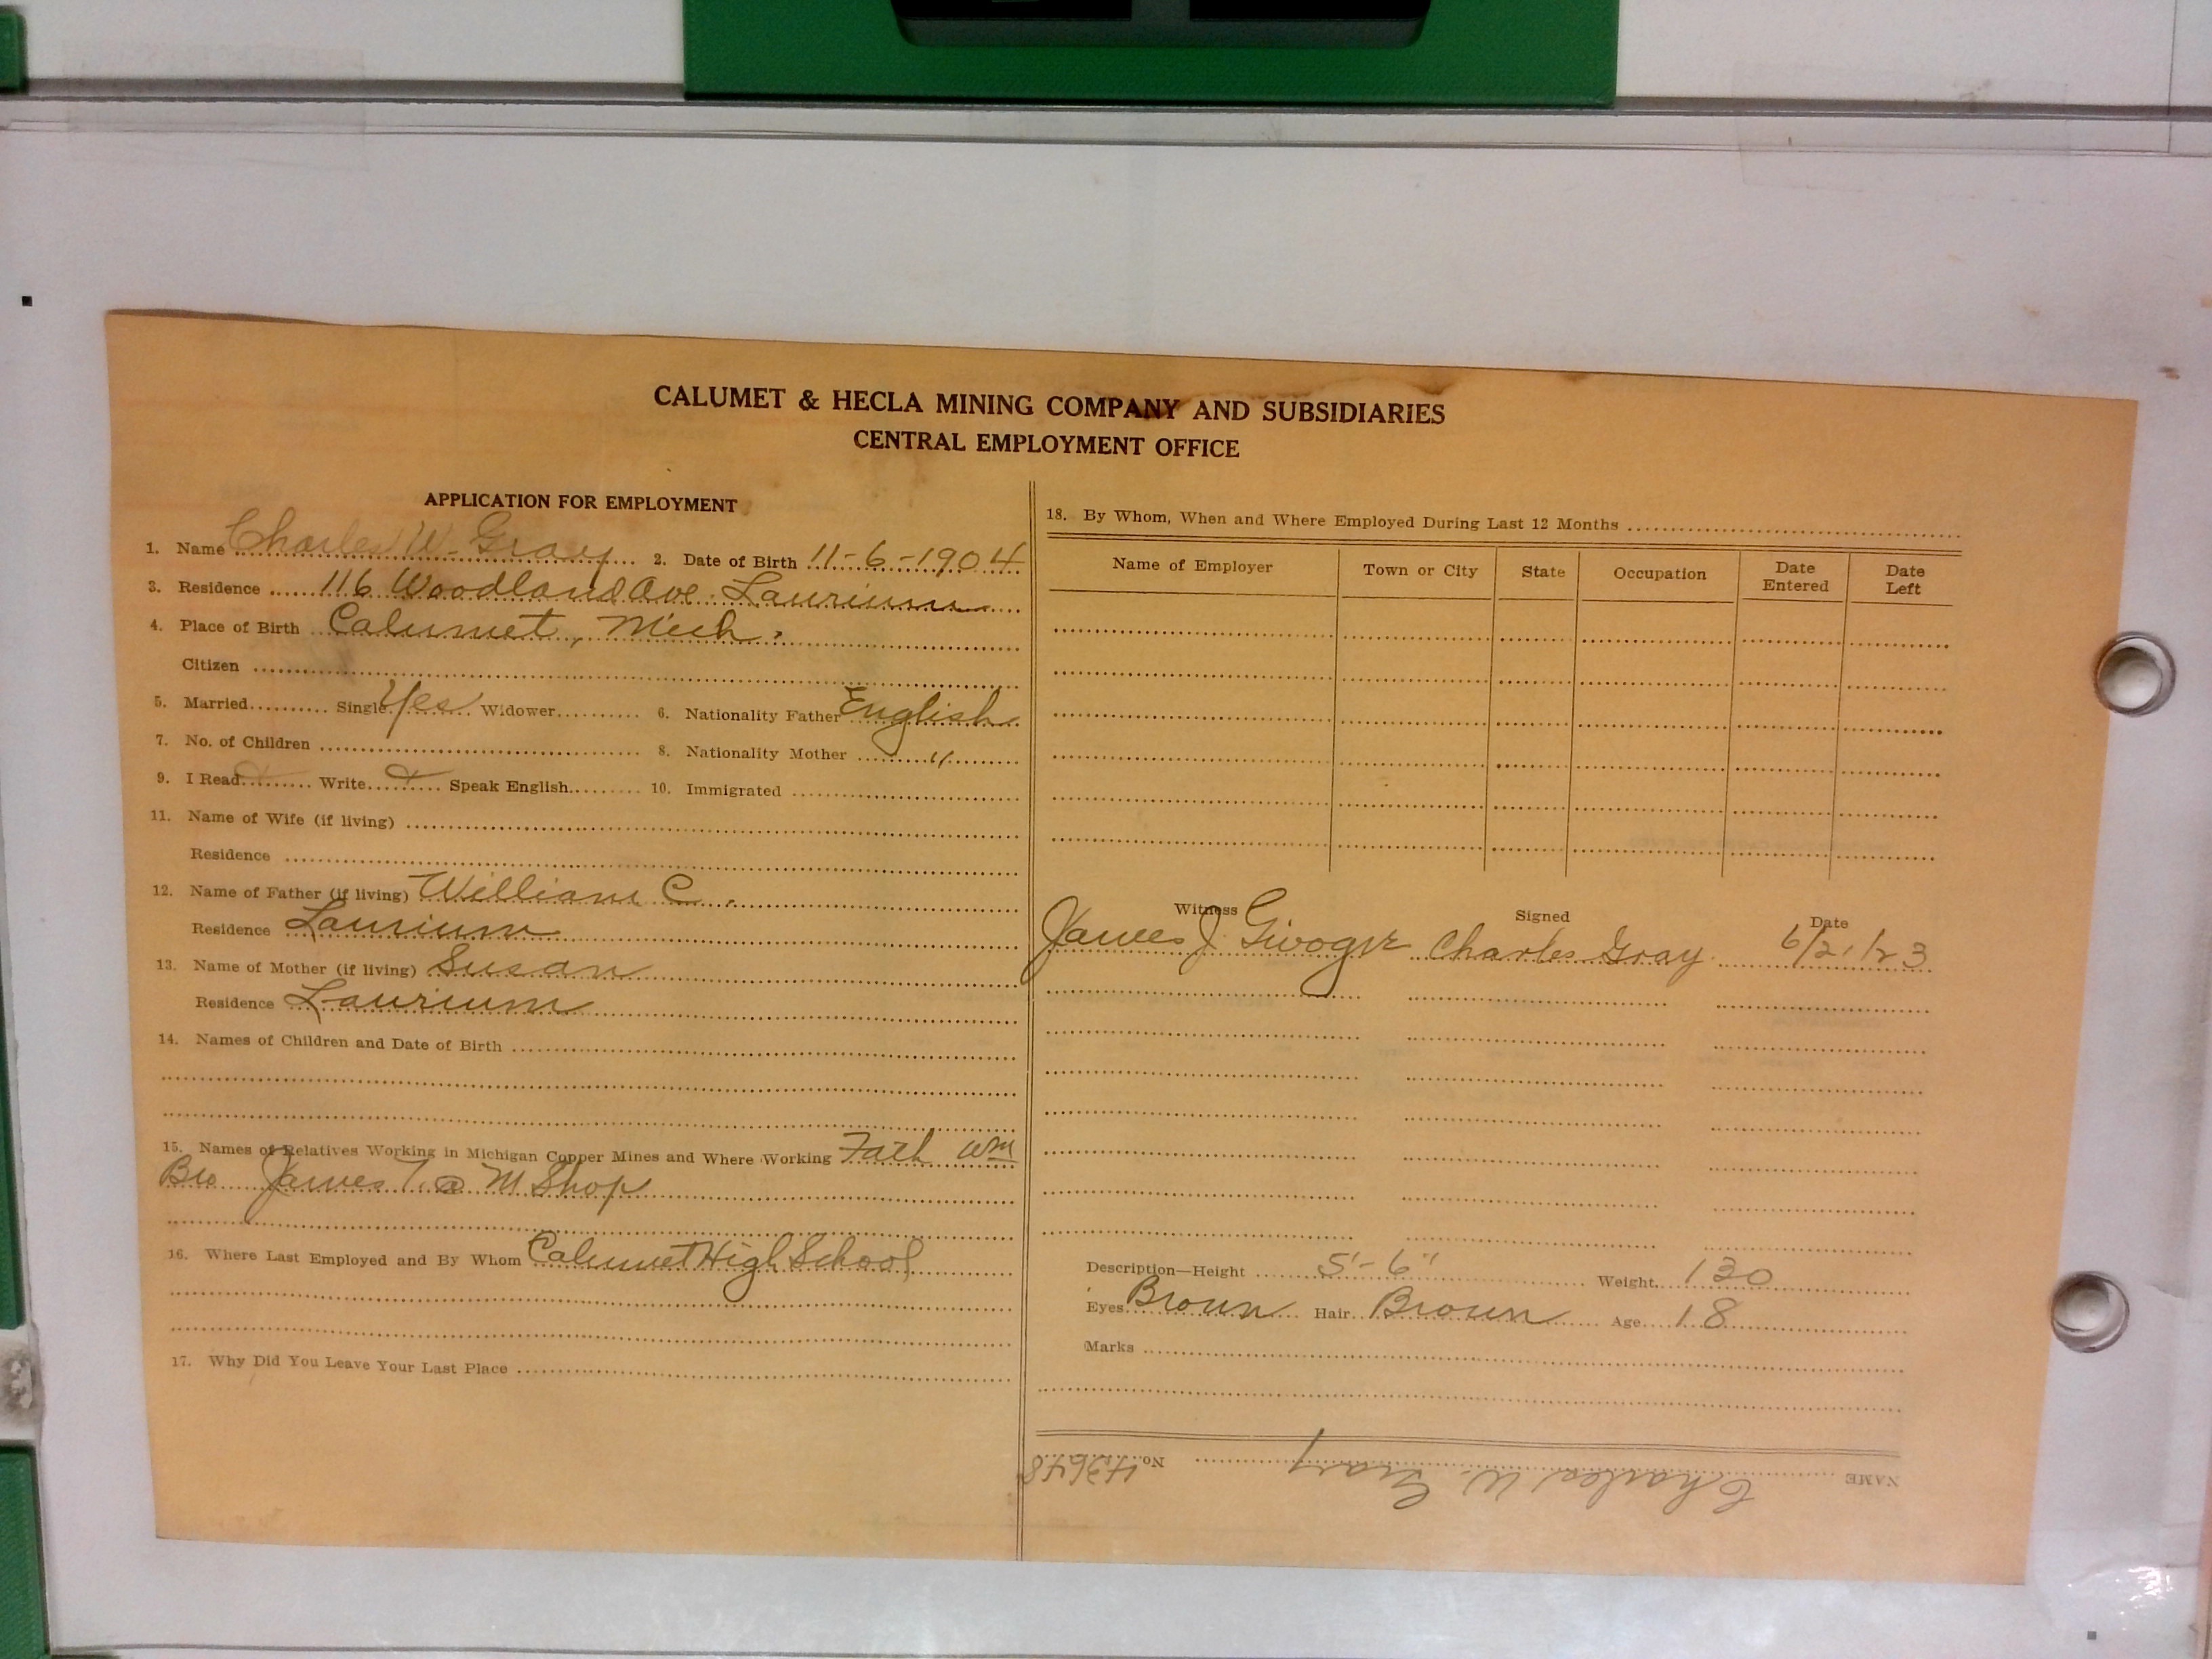 CALUMET & HECLA MINING COMPANY AND SUBSIDIARIES
CENTRAL EMPLOYMENT OFFICE
APPLICATION FOR EMPLOYMENT
1. Name Charles W. Gray 2. Date of Birth 11-6-1904
3. Residence 116 Woodland Ave. Laurium
4. Place of Birth Calumet, Mich.
Citizen
5. Married Single Yes Widower 6. Nationality Father English
7. No. of Children 8. Nationality Mother "
9. I Read Write Speak English 10. Immigrated
11. Name of Wife (if living)
Residence
12. Name of Father (if living) William C.
Residence Laurium
13. Name of Mother (if living) Susan
Residence Laurium
14. Names of Children and Date of Birth
15. Names of Relatives Working in Michigan Copper Mines and Where Working Fath Wm
Bro James T. @ M Shop
16. Where Last Employed and By Whom Calumet High School
17. Why Did You Leave Your Last Place
18. By Whom, When and Where Employed During Last 12 Months
Name of Employer Town or City State Occupation Date Entered Date Left
Witness Signed Date
James J Charles Gray 6/21/23
Description—Height 5'-6" Weight 130
Eyes Brown Hair Brown Age 18
Marks
NAME Charles W. Gray No. 43648